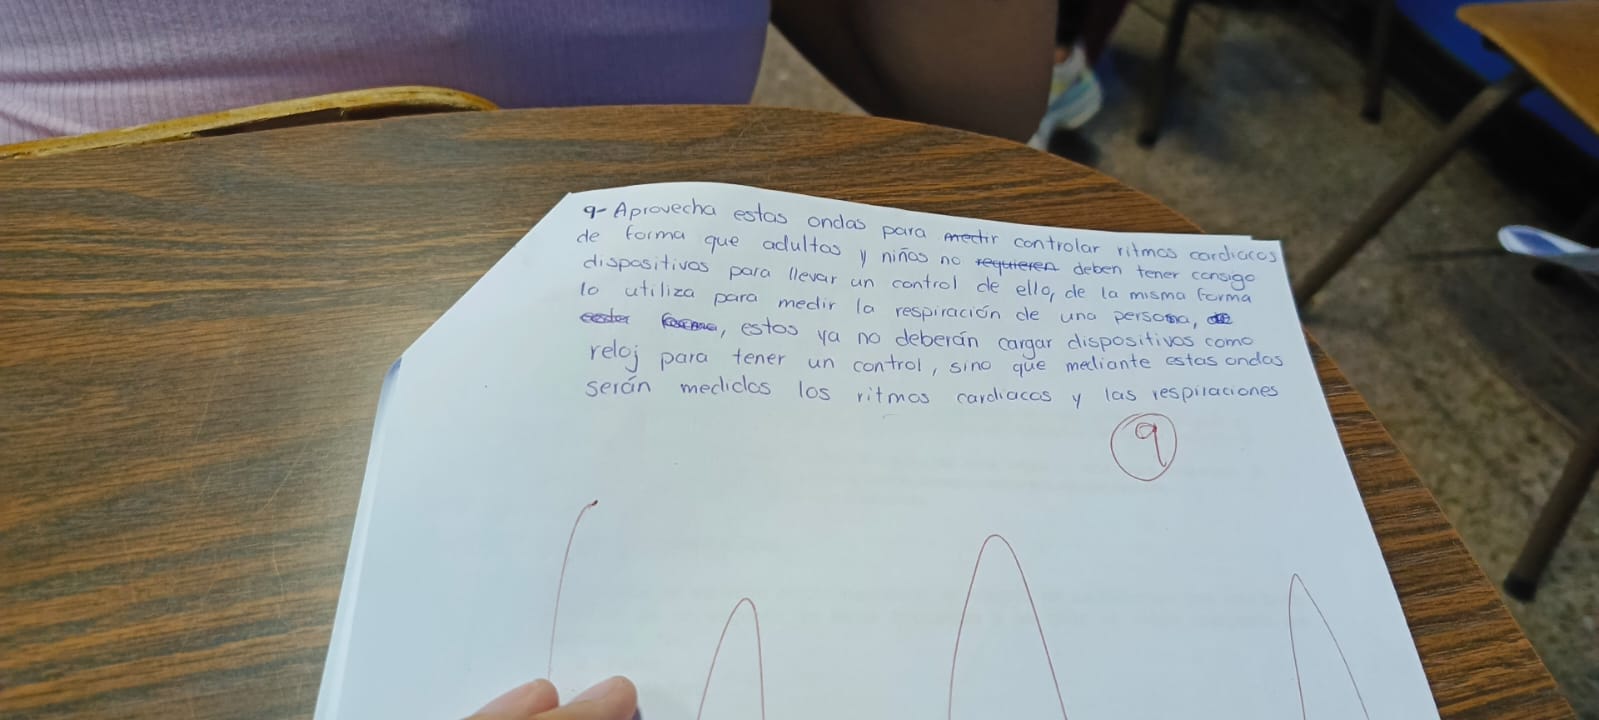 9- Aprovecha estas ondas para medir controlar ritmos cardiacos
de forma que adultos y niños no requieren deben tener consigo
dispositivos para llevar un control de ello, de la misma forma
lo utiliza para medir la respiración de una persona, de
, estos ya no deberán cargar dispositivos como
reloj para tener un control, sino que mediante estas ondas
serán medidos los ritmos cardiacos y las respiraciones
9